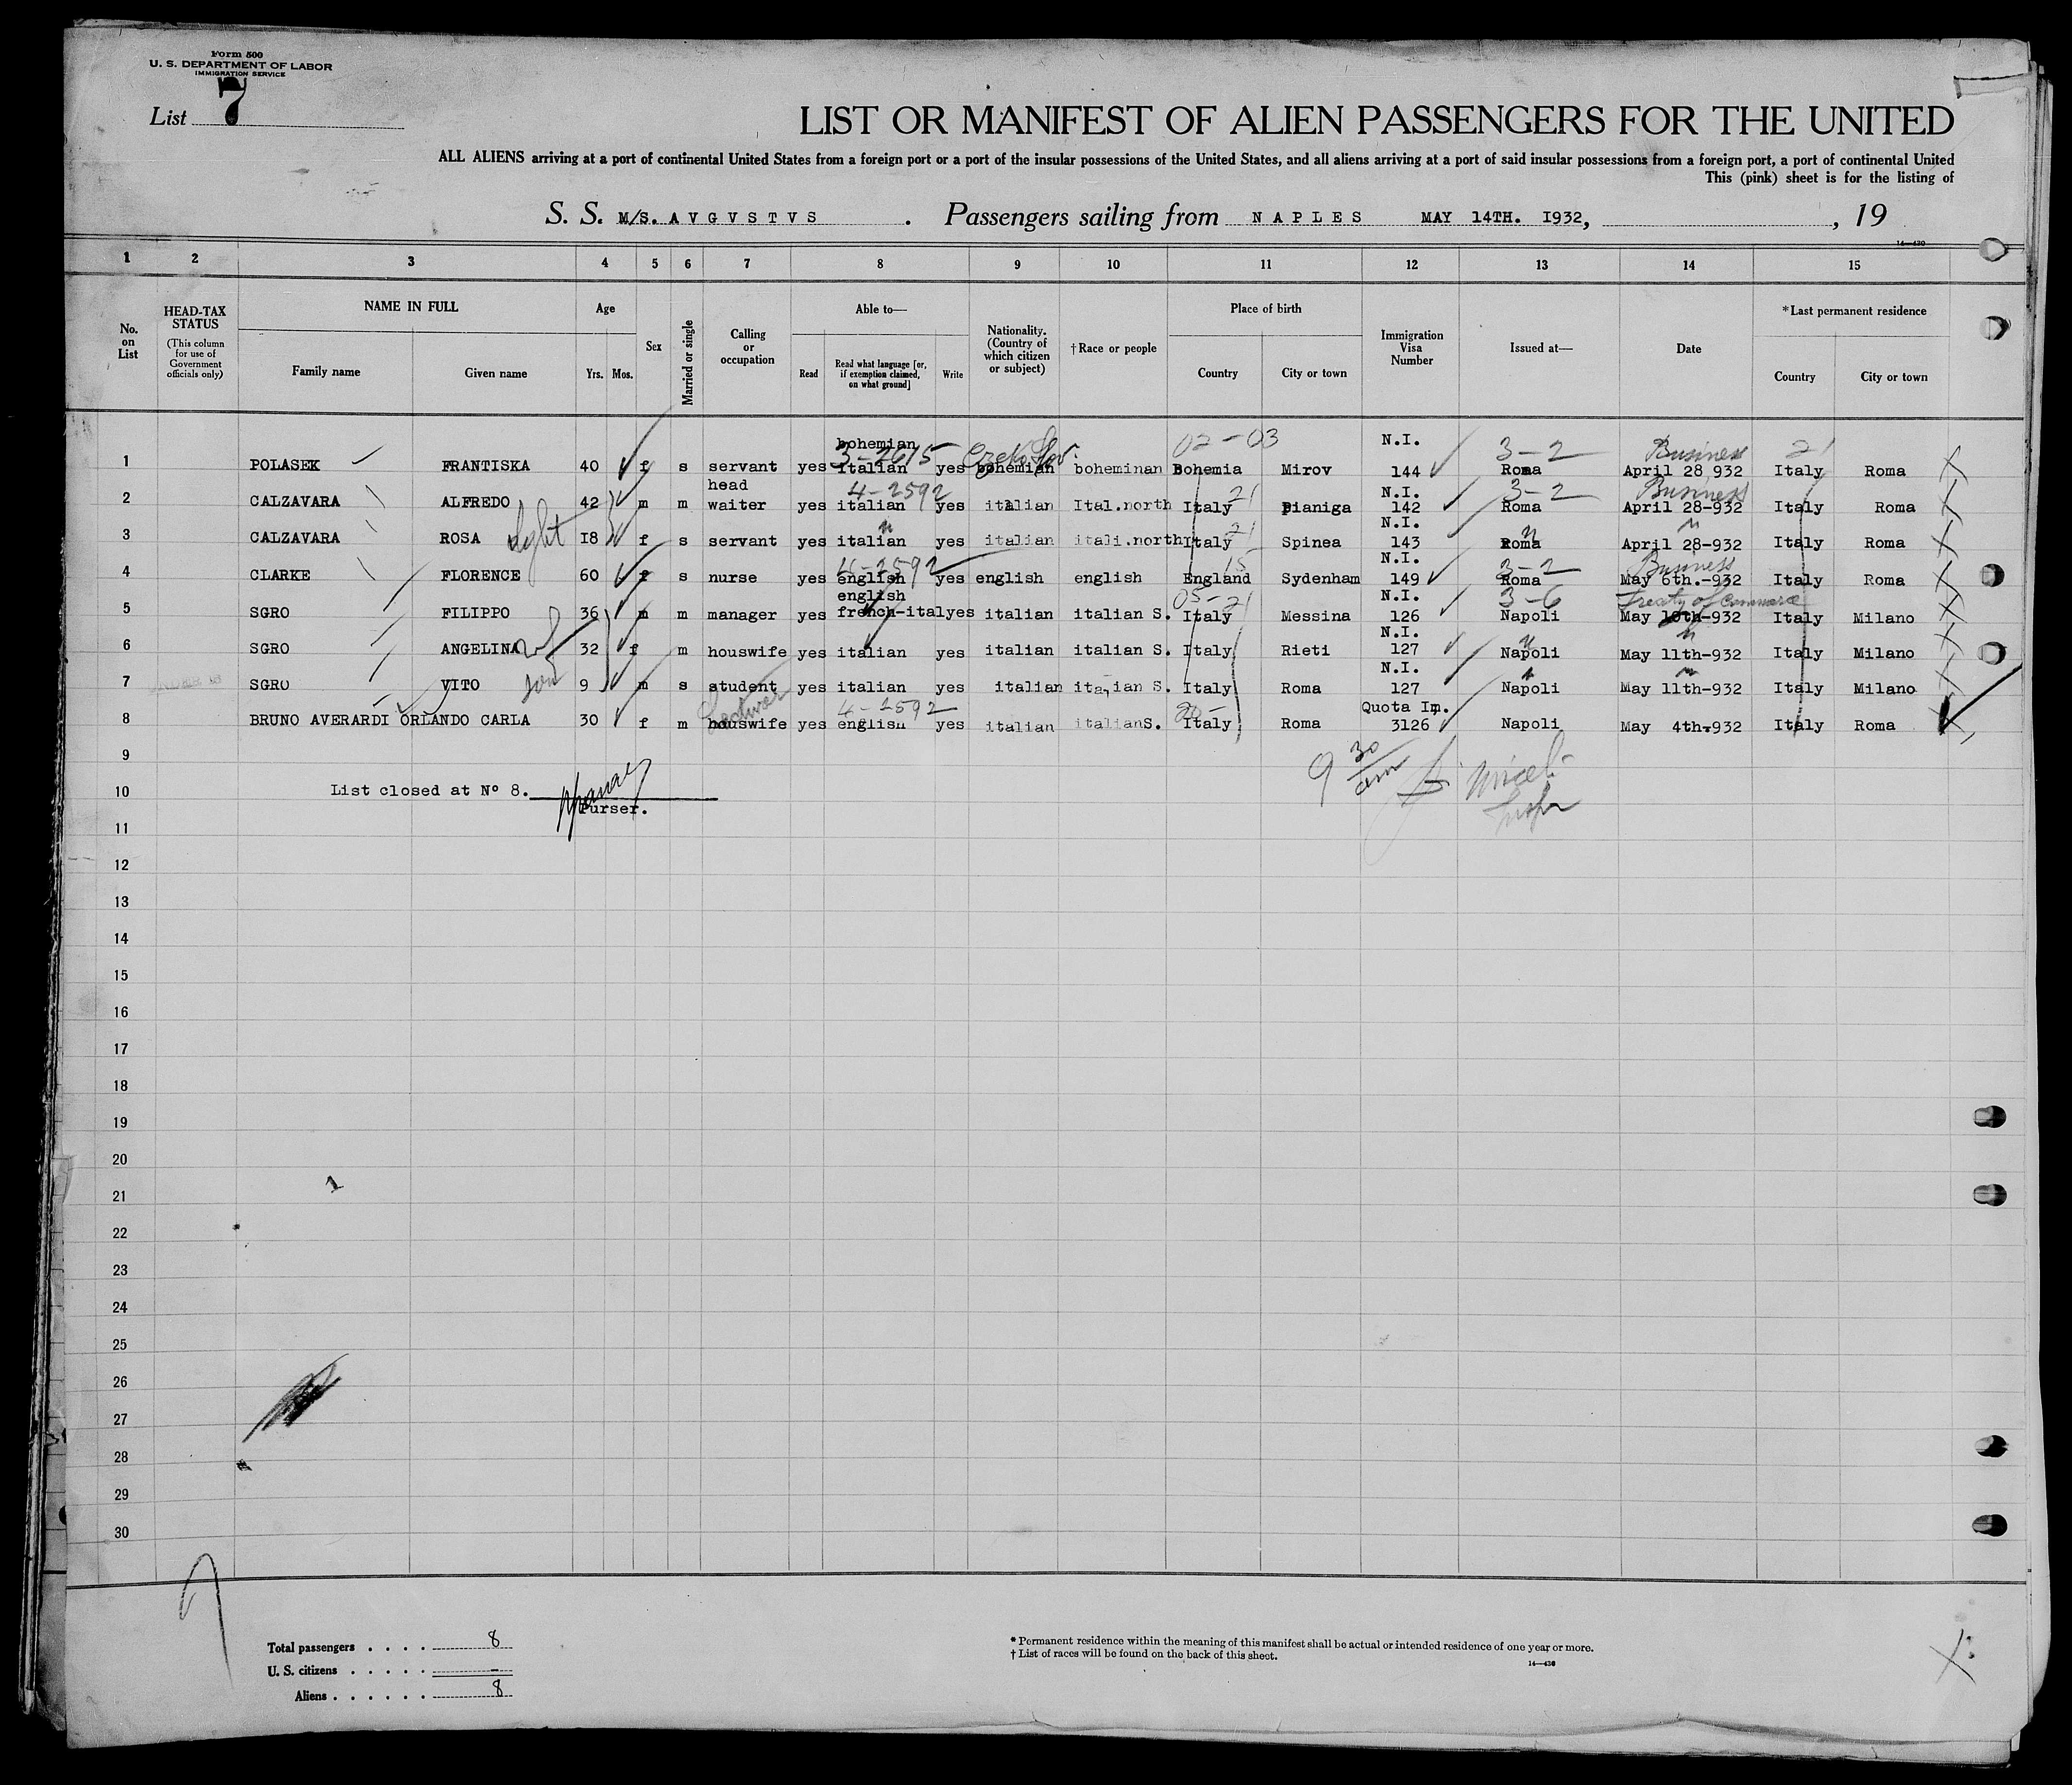 Form 500
U. S. DEPARTMENT OF LABOR
IMMIGRATION SERVICE
List 7
LIST OR MANIFEST OF ALIEN PASSENGERS FOR THE UNITED
ALL ALIENS arriving at a port of continental United States from a foreign port or a port of the insular possessions of the United States, and all aliens arriving at a port of said insular possessions from a foreign port, a port of continental United
This (pink) sheet is for the listing of
S. S. M/S. AVGVSTVS . Passengers sailing from NAPLES MAY 14TH. 1932, , 19
14—430
1 2 3 4 5 6 7 8 9 10 11 12 13 14 15
No. on List
HEAD-TAX STATUS
(This column for use of Government officials only)
NAME IN FULL
Family name Given name
Age
Yrs. Mos.
Sex
Married or single
Calling or occupation
Able to—
Read Read what language [or, if exemption claimed, on what ground] Write
Nationality. (Country of which citizen or subject)
†Race or people
Place of birth
Country City or town
Immigration Visa Number
Issued at—
Date
*Last permanent residence
Country City or town
bohemian 02-03 N.I. 3-2 Business 21
3-2615
1 POLASEK FRANTISKA 40 f s servant yes italian yes bohemian boheminan Bohemia Mirov 144 Roma April 28 932 Italy Roma
head 4-2592 21 N.I. 3-2 Business
2 CALZAVARA ALFREDO 42 m m waiter yes italian yes italian Ital.north Italy Pianiga 142 Roma April 28-932 Italy Roma
" 21 N.I. " "
3 CALZAVARA ROSA 18 f s servant yes italian yes italian itali.north Italy Spinea 143 Roma April 28-932 Italy Roma
4-2592 15 N.I. 3-2 Business
4 CLARKE FLORENCE 60 f s nurse yes english yes english english England Sydenham 149 Roma May 6th.-932 Italy Roma
english 05-21 N.I. 3-6 Treaty of Commerce
5 SGRO FILIPPO 36 m m manager yes french-ital yes italian italian S. Italy Messina 126 Napoli May 10th-932 Italy Milano
N.I. " "
6 SGRO ANGELINA 32 f m houswife yes italian yes italian italian S. Italy Rieti 127 Napoli May 11th-932 Italy Milano
N.I. " "
7 SGRO VITO son 9 m s student yes italian yes italian italian S. Italy Roma 127 Napoli May 11th-932 Italy Milano
Lecturer 4-2592 Quota Im.
8 BRUNO AVERARDI ORLANDO CARLA 30 f m houswife yes english yes italian italianS. Italy Roma 3126 Napoli May 4th-932 Italy Roma
9
9 30 am
10 List closed at Nº 8.
Purser.
11
12
13
14
15
16
17
18
19
20
21
22
23
24
25
26
27
28
29
30
Total passengers . . . . 8
U. S. citizens . . . . . -
Aliens . . . . . . 8
* Permanent residence within the meaning of this manifest shall be actual or intended residence of one year or more.
† List of races will be found on the back of this sheet.
14—430